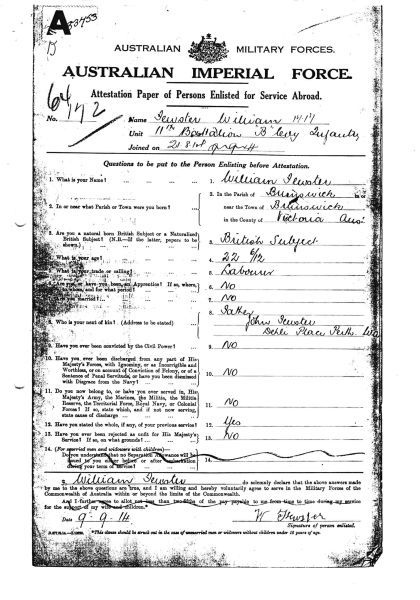 A
33453
AUSTRALIAN MILITARY FORCES.
AUSTRALIAN IMPERIAL FORCE.
Attestation Paper of Persons Enlisted for Service Abroad.
No.
Name Fewster William
Unit 11th Battalion B Coy Infantry
Joined on
Questions to be put to the Person Enlisting before Attestation.
1. What is your Name? ... 1. William Fewster
2. In or near what Parish or Town were you born? ... 2. In the Parish of Brunswick in or
near the Town of Brunswick
in the County of Victoria Aus
3. Are you a natural born British Subject or a Naturalized
British Subject? (N.B.—If the latter, papers to be
shown.) 3. British Subject
4. What is your age? 4. 22 6/12
5. What is your trade or calling? 5. Labourer
6. Are you, or have you been, an Apprentice? If so, where,
to whom, and for what period? 6. No
7. Are you married? 7. No
8. Who is your next of kin? (Address to be stated) 8. Father
John Fewster
Place Perth WA
9. Have you ever been convicted by the Civil Power? 9. No
10. Have you ever been discharged from any part of His
Majesty's Forces, with Ignominy, or as Incorrigible and
Worthless, or on account of Conviction of Felony, or of a
Sentence of Penal Servitude, or have you been dismissed
with Disgrace from the Navy? 10. No
11. Do you now belong to, or have you ever served in, His
Majesty's Army, the Marines, the Militia, the Militia
Reserve, the Territorial Force, Royal Navy, or Colonial
Forces? If so, state which, and if not now serving,
state cause of discharge 11. No
12. Have you stated the whole, if any, of your previous service? 12. Yes
13. Have you ever been rejected as unfit for His Majesty's
Service? If so, on what grounds? 13. No
14. (For married men and widowers with children)—
Do you understand that no Separation Allowance will be
issued to you either before or after embarkation
during your term of service? 14.
I, William Fewster do solemnly declare that the above answers made
by me to the above questions are true, and I am willing and hereby voluntarily agree to serve in the Military Forces of the
Commonwealth of Australia within or beyond the limits of the Commonwealth.
And I further agree to allot not less than two-fifths of the pay payable to me from time to time during my service
for the support of my wife and children.
Date 9-9-14 W Fewster
Signature of person enlisted.
*This clause should be struck out in the case of unmarried men or widowers without children under 18 years of age.